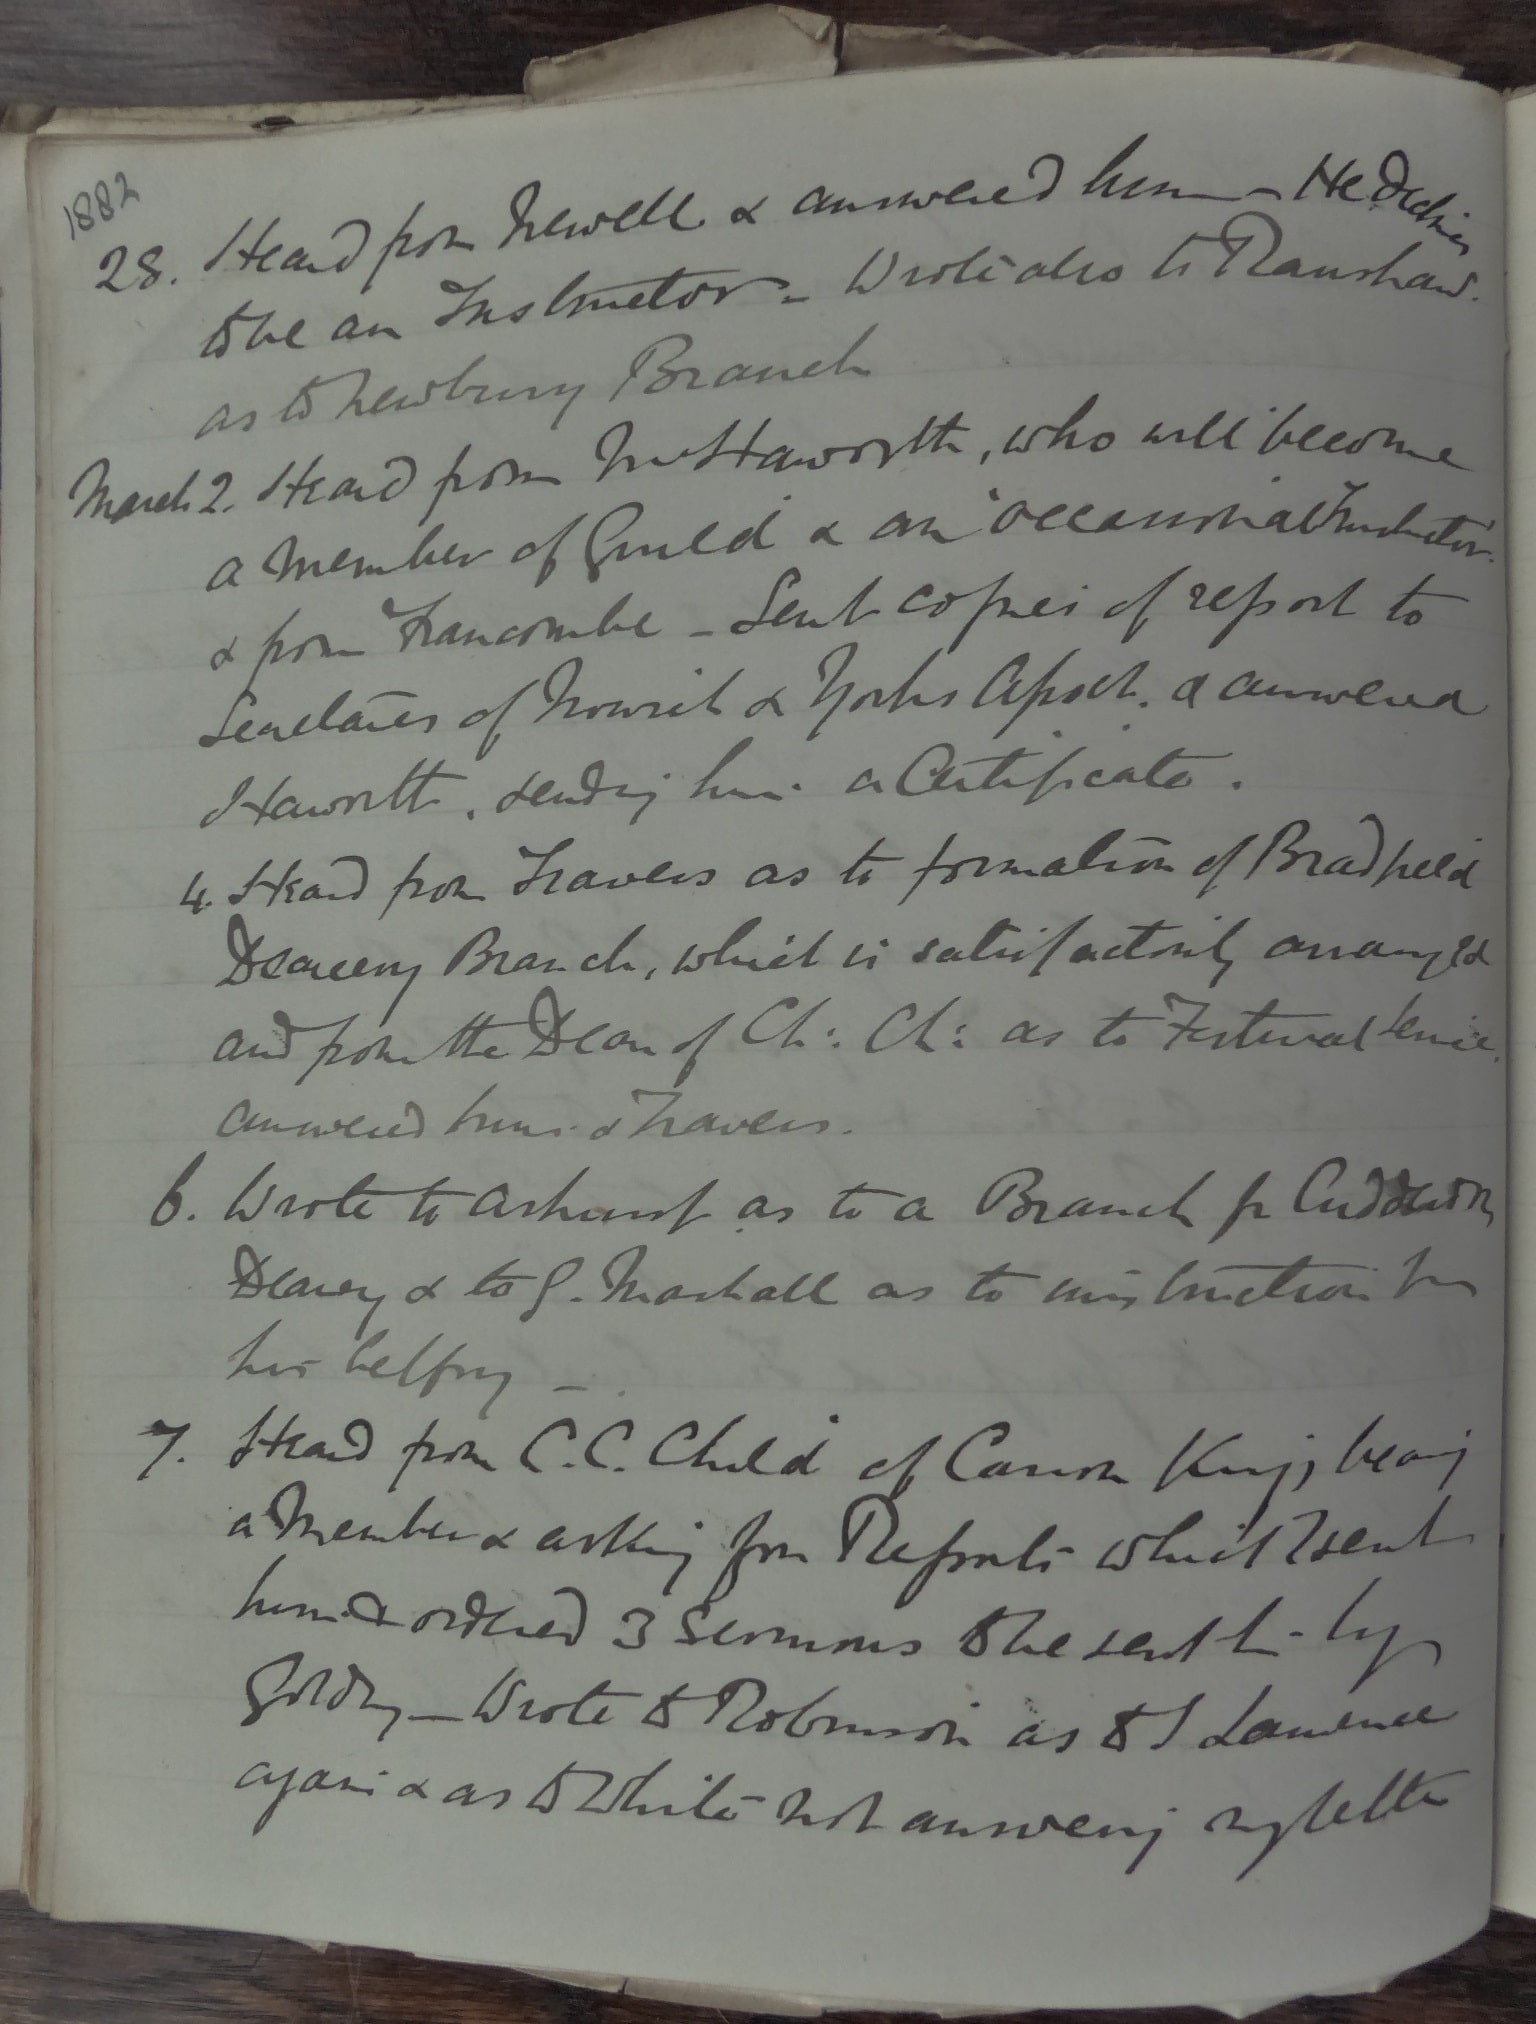 1882
28. Heard from Newell & answered him – He declines
to be an Instructor – Wrote also to Ranshaw
as to Newbury Branch
March 2. Heard from Mr Haworth, who will become
a member of Guild & an occasional Instructor
& from Francombe – Sent copies of report to
Secretaries of Norwich & Yorks Assoch. & answered
Haworth, sending him a Certificate.
4. Heard from Travers as to formation of Bradfield
Deanery Branch, which is satisfactorily arranged
and from the Dean of Ch: Ch: as to Festival Service.
answered him & Travers.
6. Wrote to Ashurst as to a Branch for Cuddesdon
Deanery & to G. Marshall as to instruction for
his belfry –
7. Heard from C. C. Child of Canon King's being
a Member & asking for Reports which I sent
him & ordered 3 Sermons to be sent by
Golding – Wrote to Robinson as to S Lawrence
again & as to White not answering my letter